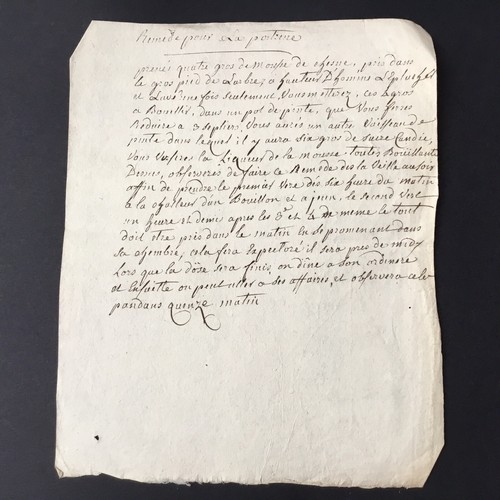 Remede pour La poitrine
prenés quatre gros de mousse de chesne, pris dans
le gros pied de Larbre, a hauteur D'homme L'Epluches
et Lavé une fois seulement, Vous metterez, ces 4 gros
a Bouillir, dans un pot de pinte, que Vous feres
Reduire a 3 septiers, Vous aurés un autre Vaisseau de
pinte dans lequel il y aura six gros de sucre Candie,
Vous Verseres la Liqueur de la mousse, toutes Bouillante
Dessus, observeres de faire le Remede des la Veille au soir
affin de prendre le premier Vere dès six heure du matin
a la chaleur d'un Bouillon et a jeun, le second Vert
un heure et demie apres les 3e et 4e de meme le tout
doit etre pris dans le matin en se promenant dans
sa chambre, cela fera il sera pres de midy
Lors que la doze sera finis, on dine a son ordinere
et en suitte on peut aller a ses affaires, et observera cela
pandans quenze matin